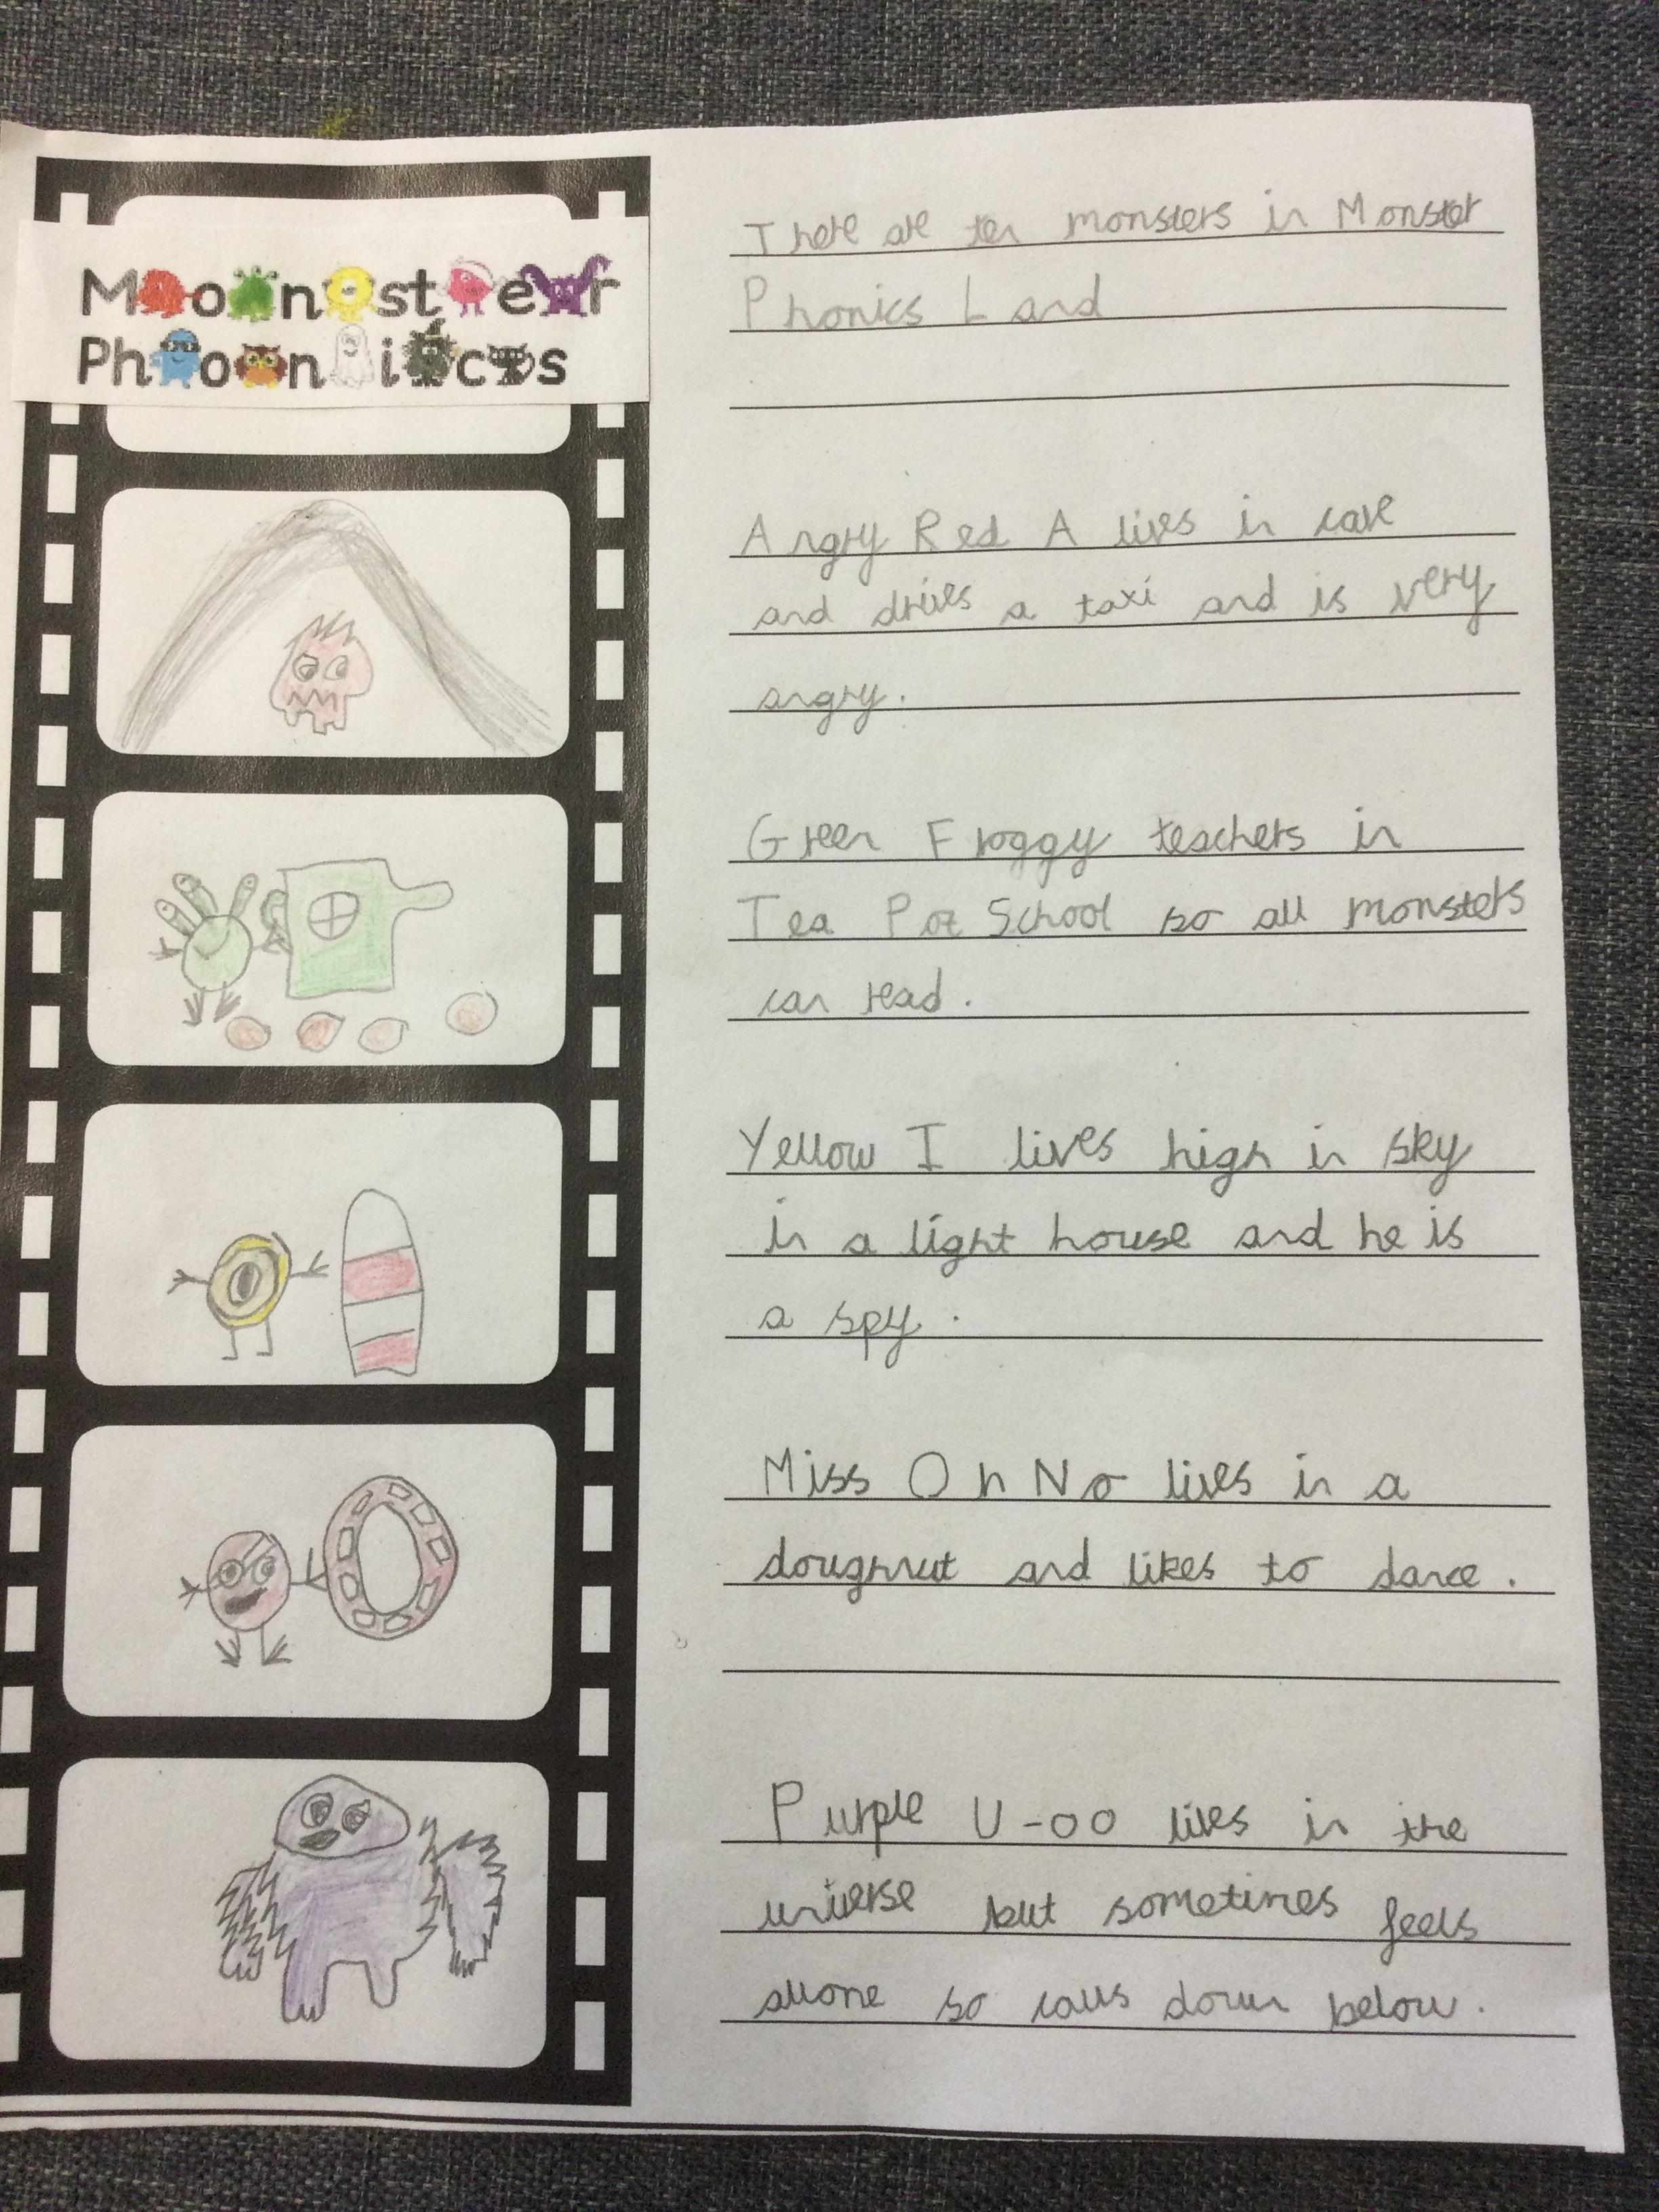 Monster
Phonics
There are ten monsters in Monster
Phonics Land
Angry Red A lives in cave
and drives a taxi and is very
angry.
Green Froggy teachers in
Tea Pot School so all monsters
can read.
Yellow I lives high in sky
in a light house and he is
a spy.
Miss Oh No lives in a
doughnut and likes to dance.
Purple U-oo lives in the
universe but sometimes feels
allone so calls down below.